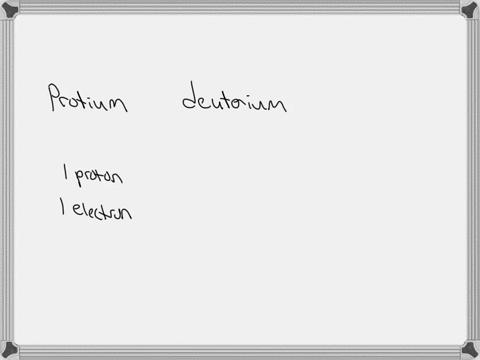 Protium deutorium
1 proton
1 electron